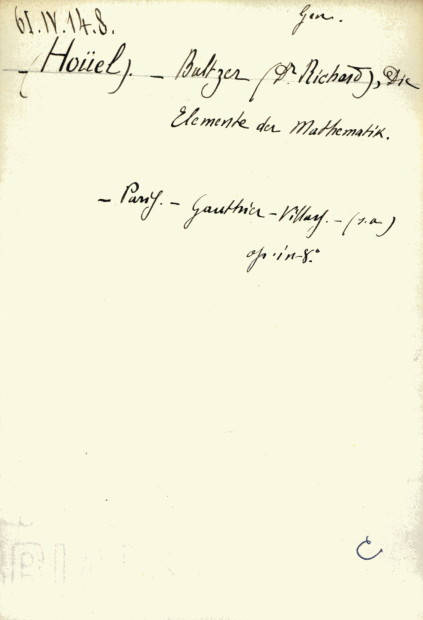 61.IV.14.8.
Gen.
(Hoüel). – Baltzer (Dr Richard), Die
Elemente der Mathematik.
– Paris. – Gauthier-Villars. – (s.a)
op. in-8.°
C